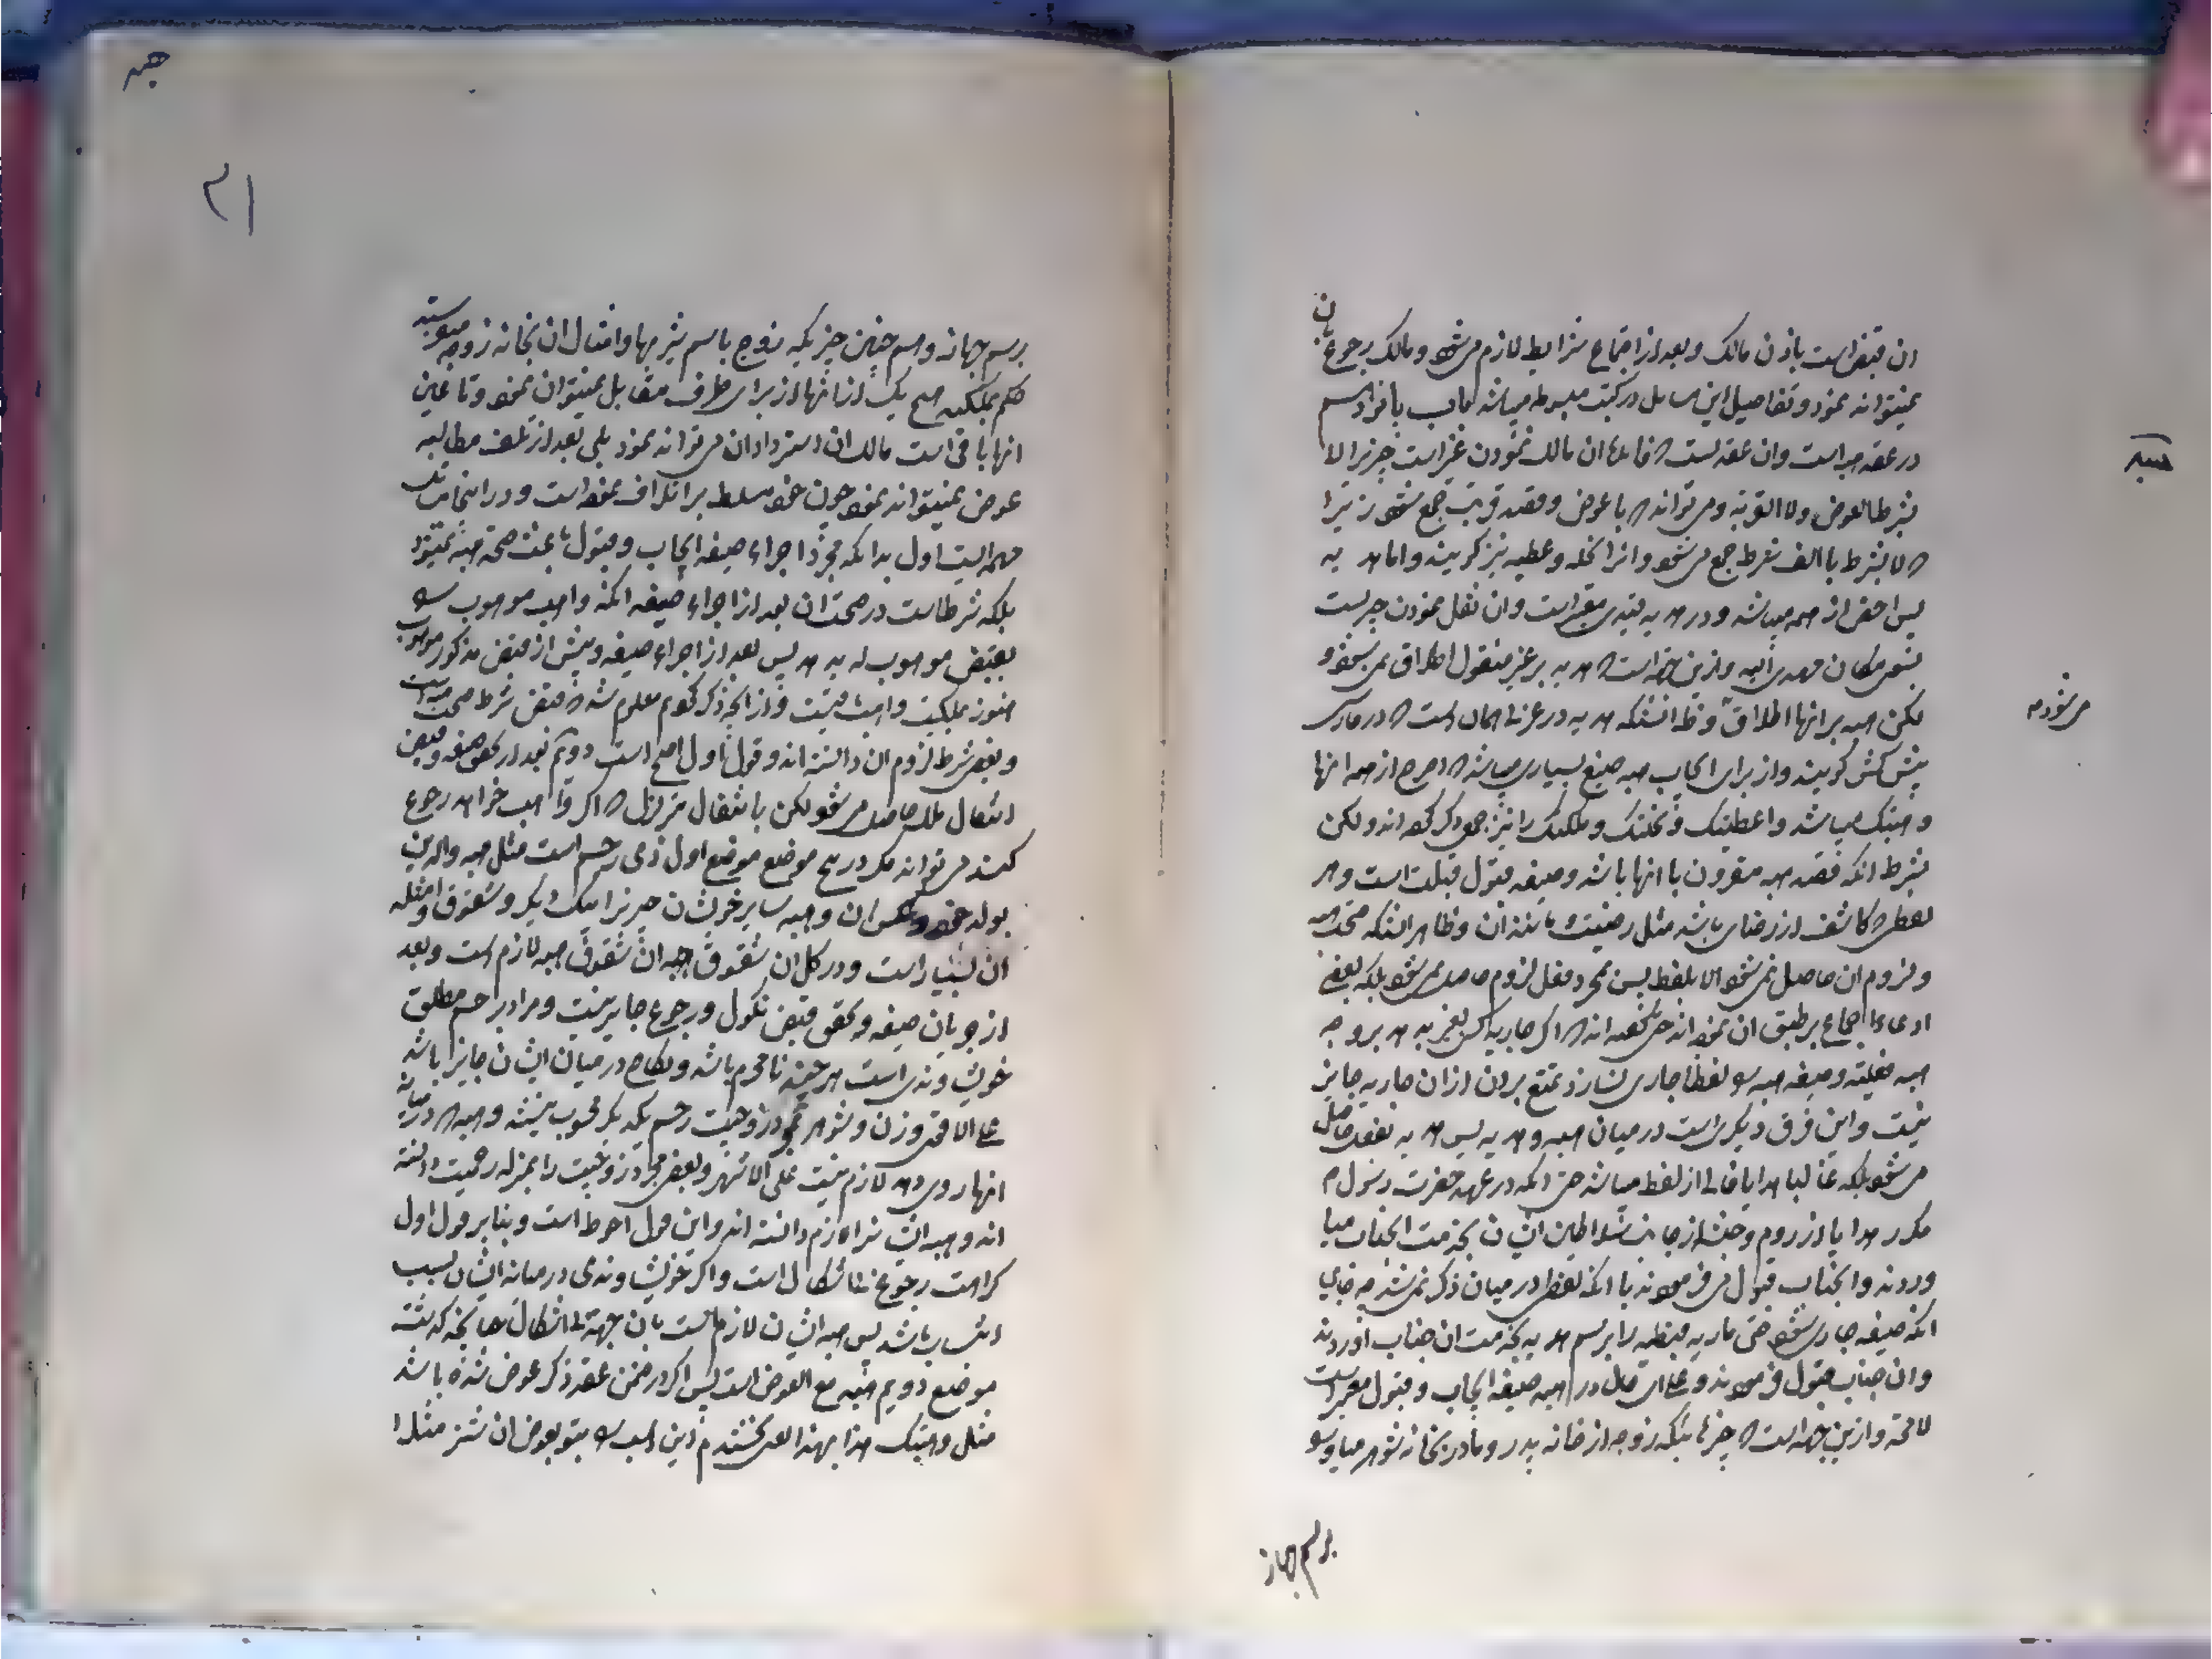 ان قبض است باذن مالک و بعد از اجتماع شرایط لازم میشود و مالک رجوع بان
نمیتواند نمود و تفاصیل این مسایل در کتب مبسوطه میباشد باب پانزدهم
در عقد هبه است وان عقدیست که فایده ان مالک نمودن غیر است چیزیرا لا
بشرط العوض ولا القربة و میتواند که با عوض و قصد قربت جمع شود زیرا
که لا بشرط با الف شرط جمع میشود و انرا نحله و عطیه نیز گویند و اما هدیه
پس اخص از هبه میباشد و در هدیه قیدی معتبر است وان نقل نمودن چیزیست
بسوی مکان مهدی الیه و ازین جهة است که هدیه بر غیر منقول اطلاق نمیشود و
لکن هبه بر انها اطلاق و ظ انستکه هدیه در عرف همان است که در فارسی
پیش کش گویند و از برای ایجاب هبه صیغ بسیاری میباشد که اصرح از همه انها
وهبتک میباشد و اعطیتک و نحلتک و ملکتک را نیز جمعی ذکر کرده اند و لکن
بشرط انکه قصد هبه مقرون با انها باشد و صیغه قبول قبلت است و هر
لفظی که کاشف از رضای باشد مثل رضیت و مانند ان و ظاهر انستکه صحت هبه
و لزوم ان حاصل نمیشود الا بلفظ پس بمجرد فعل لزوم حاصل نمیشود بلکه بعضی
ادعاء اجماع بر طبق ان نموده اند حتی گفته اند که اگر جاریه کسی بغیر بدهد بر وجه
هبه فعلیه و صیغه هبه را لفظا جاری نسازد تمتع بردن از ان جاریه جایز
نیست و این فرق دیگری است در میان هبه و هدیه پس هدیه بفعل حاصل
میشود بلکه غالبا هدایا خالی از لفظ میباشد حتی انکه در عهد حضرت رسول م
مکرر هدایا از روم و حبشه از جانب سلاطین ایشان بخدمت انجناب میا
وردند و انجناب قبول میفرمودند با انکه لفظی در میان ذکر نمیشد چه جای
انکه صیغه جاری شود حتی ماریه قبطیه را برسم هدیه بخدمت ان جناب اوردند
وان جناب قبول فرمودند و علی ای حال در هبه صیغه ایجاب و قبول معتبر است
لا محة و ازین جهة است که چیزهائیکه زوجه از خانه پدر و مادر بخانه شوهر میاورد
برسم جهاز
میشود م
هبه
۲۱
برسم جهاز و همچنین چیزیکه زوج باسم شیربها و امثال ان بخانه زوجه میفرستد
حکم بملکیه هیچ یک از انها از برای طرف مقابل نمیتوان نمود و تا عین
انها باقی است مالک ان استرداد ان میتواند نمود بلی بعد از تلف مطالبه
عوض نمیتواند نمود چون خود مسلط بر اتلاف نموده است و در اینجا
مهمه ایست اول بدانکه مجرد اجراء صیغه ایجاب و قبول باعث صحة هبه نمیشود
بلکه شرط است در صحت ان بعد از اجراء صیغه انکه واهب موهوب را
بقبض موهوب له بدهد پس بعد از اجراء صیغه و پیش از قبض مذکور موهوب
هنوز بملکیت واهب باقیست و از انچه ذکر کردیم معلوم شد که قبض شرط صحت هبه است
و بعضی شرط لزوم ان دانسته اند و قول اول اصح است دویم بعد از تحقق صیغه و قبض
انتقال ملک حاصل میشود لکن بانتقال متزلزل که اگر واهب خواهد رجوع
کند میتواند مگر در پنج موضع موضع اول ذی رحم است مثل هبه والدین
بولد خود و عکس ان و هبه سایر خویشان چیزیرا بیک دیگر و شقوق و امثله
ان بسیار است و در کل ان شقوق هبه ان شقوق هبه لازم است و بعد
از جریان صیغه و تحقق قبض نکول و رجوع جایز نیست و مراد بر رحم مطلق
خویشاوندی است هرچند نامحرم باشد و نکاح در میان ایشان جایز باشد
علی الاقوی و زن و شوهر بمجرد زوجیت رحم یکدیگر محسوب نیستند و هبه که در میانه
انها روی دهد لازم نیست علی الاشهر و بعضی مجرد زوجیت را بمنزله رحمیت دانسته
اند و هبه ایشان را لازم دانسته اند و این قول احوط است و بنابر قول اول
کراهت رجوع خالی از اشکال است و اگر خویشاوندی در میانه ایشان بسبب
نسب باشد پس هبه ایشان لازم است بان جهة بی اشکال چنانچه گذشت
موضع دویم هبه مع العوض است پس اگر در ضمن عقد ذکر عوض شده باشد
مثل وهبتک هذا بهذا یعنی بخشیدم این اسب را بتو بعوض ان شتر مثلا